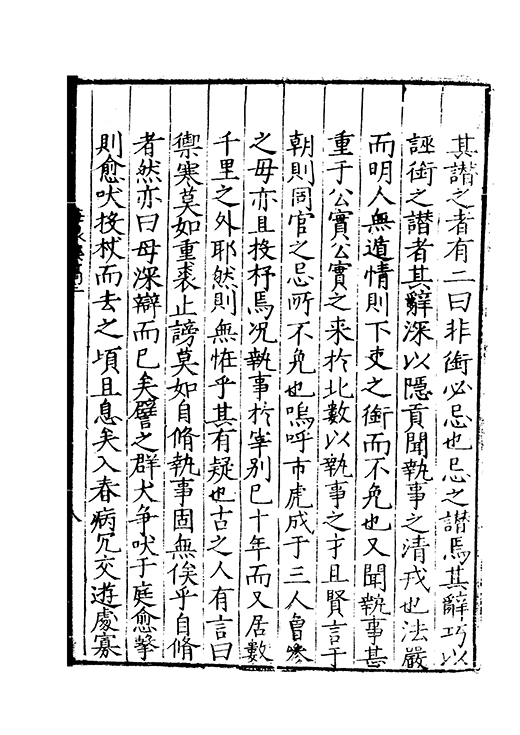 其譛之者有二曰非銜必忌也忌之譛焉其辭巧以
誣銜之譛者其辭深以隱貢聞執事之清戎也法嚴
而明人無遁情則下吏之銜而不免也又聞執事甚
重于公實公實之来於北數以執事之才且賢言于
朝則同官之忌所不免也嗚呼市虎成于三人曾參
之母亦且投杼焉况執事於宰別已十年而又居數
千里之外耶然則無怪乎其有疑也古之人有言曰
禦寒莫如重裘止謗莫如自脩執事固無俟乎自脩
者然亦曰毋深辯而已矣譬之群犬争吠于庭愈擊
則愈吠投杖而去之頃且息矣入春病冗交遊處寡